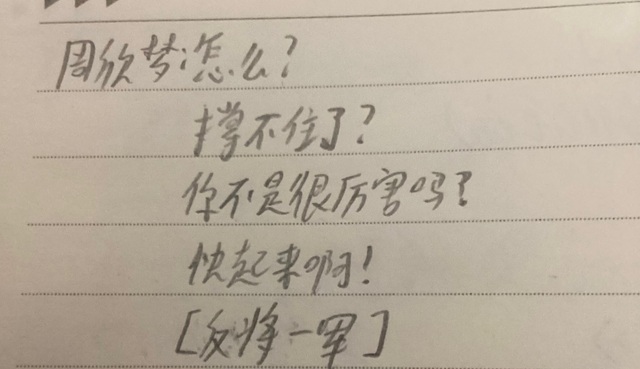 周欣梦:怎么?
撑不住了?
你不是很厉害吗?
快起来啊!
[反将一军]